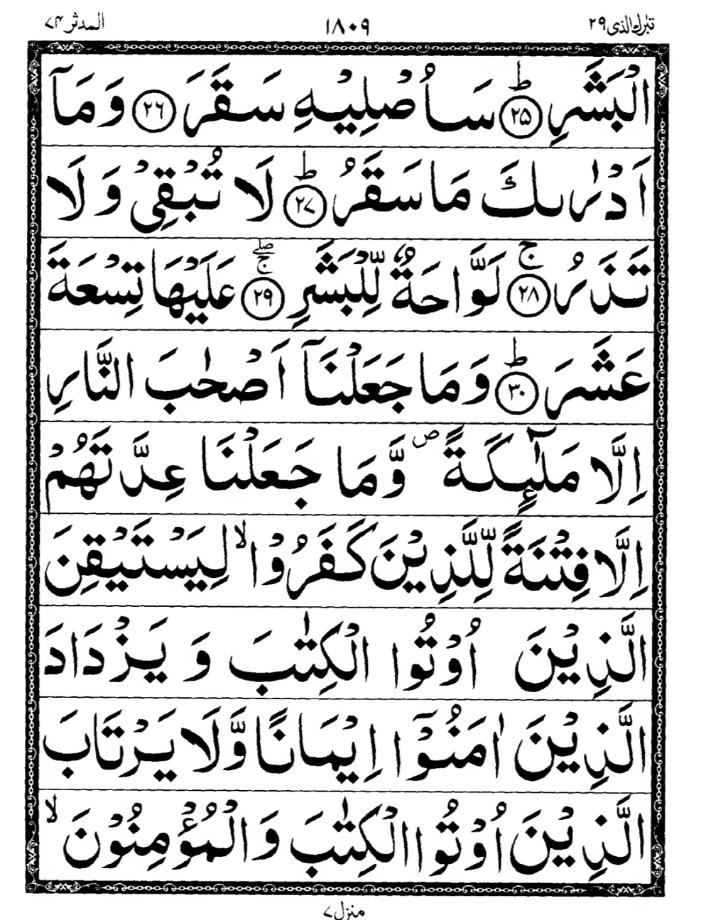 تبرك الذی ۲۹ ۱۸۰۹ المدثر ۷۴
الْبَشَرِ ؕ﴿۲۵﴾ سَاُصْلِیْهِ سَقَرَ ﴿۲۶﴾ وَمَاۤ
اَدْرٰىكَ مَا سَقَرُ ؕ﴿۲۷﴾ لَا تُبْقِیْ وَ لَا
تَذَرُ ۚ﴿۲۸﴾ لَوَّاحَةٌ لِّلْبَشَرِ ۖۚ﴿۲۹﴾ عَلَیْهَا تِسْعَةَ
عَشَرَ ؕ﴿۳۰﴾ وَمَا جَعَلْنَاۤ اَصْحٰبَ النَّارِ
اِلَّا مَلٰٓىِٕكَةً ۪ وَّمَا جَعَلْنَا عِدَّتَهُمْ
اِلَّا فِتْنَةً لِّلَّذِیْنَ كَفَرُوْا ۙ لِیَسْتَیْقِنَ
الَّذِیْنَ اُوْتُوا الْكِتٰبَ وَ یَزْدَادَ
الَّذِیْنَ اٰمَنُوْۤا اِیْمَانًا وَّلَا یَرْتَابَ
الَّذِیْنَ اُوْتُوا الْكِتٰبَ وَالْمُؤْمِنُوْنَ ۙ
منزل ۷